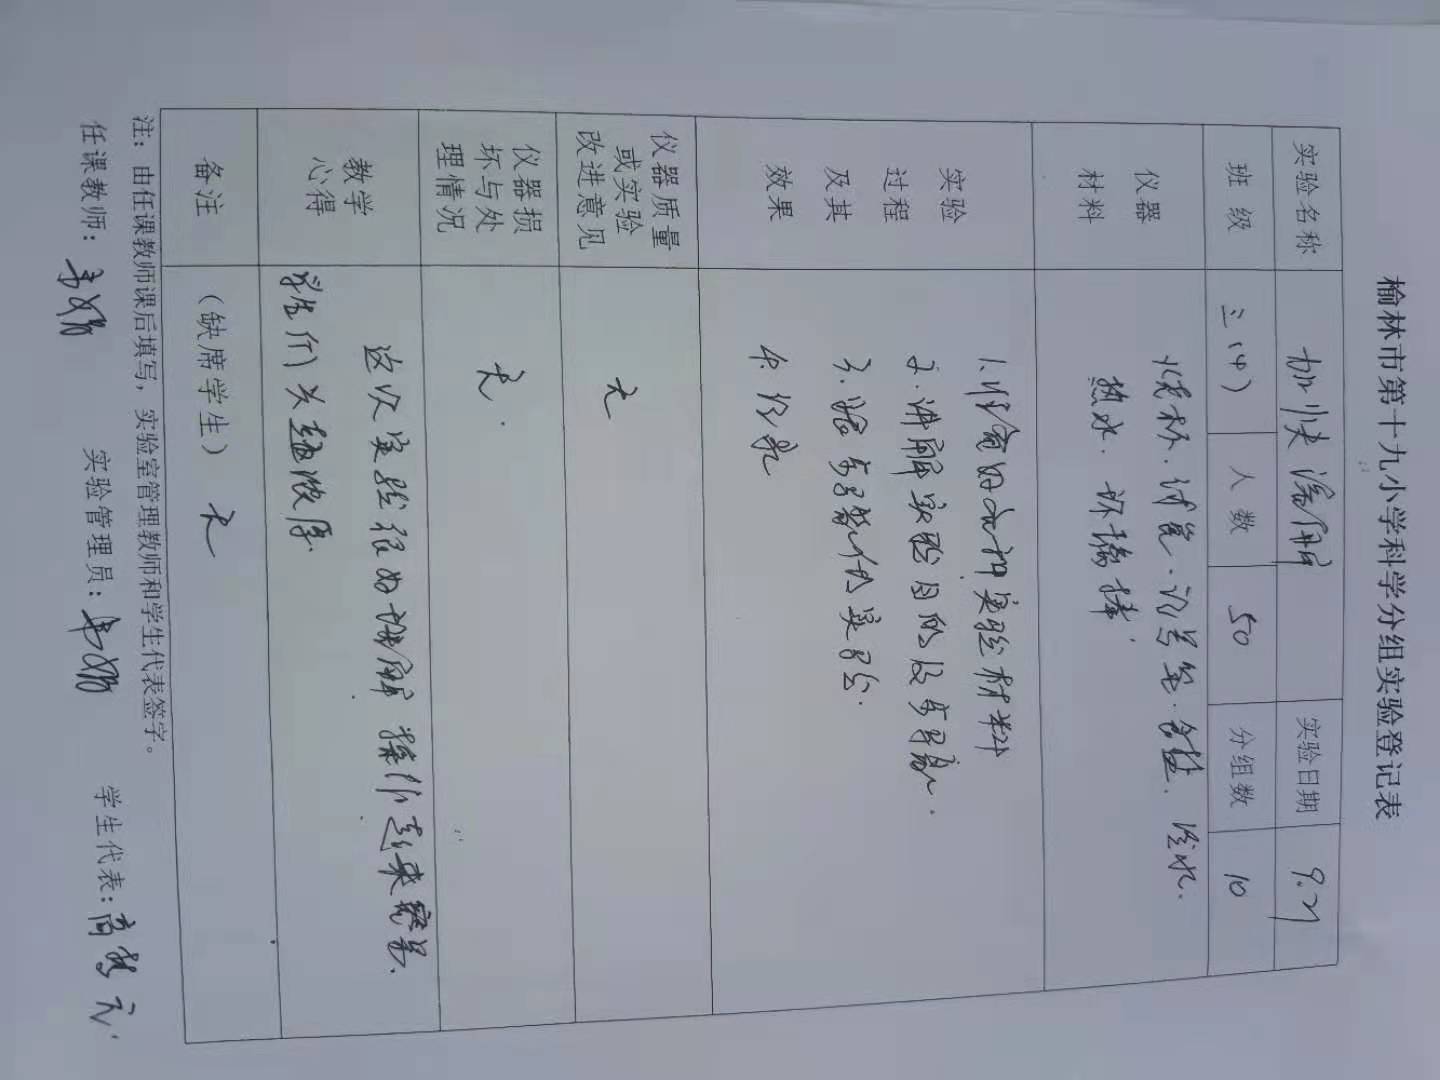 榆林市第十九小学科学分组实验登记表
实验名称 加快溶解 实验日期 9.21
班级 三(4) 人数 50 分组数 10
仪器材料 烧杯、试管、记号笔、食盐、冷水、
热水、玻璃棒
实验过程及其效果 1.准备好分组实验材料
2.讲解实验目的及步骤.
3.按步骤做实验.
4.记录
仪器质量或实验改进意见 无
仪器损坏与处理情况 无.
教学心得 这次实验很好理解 操作起来容易.
学生们兴趣浓厚.
备注 (缺席学生) 无
注：由任课教师课后填写，实验室管理教师和学生代表签字。
任课教师： 实验管理员： 学生代表：